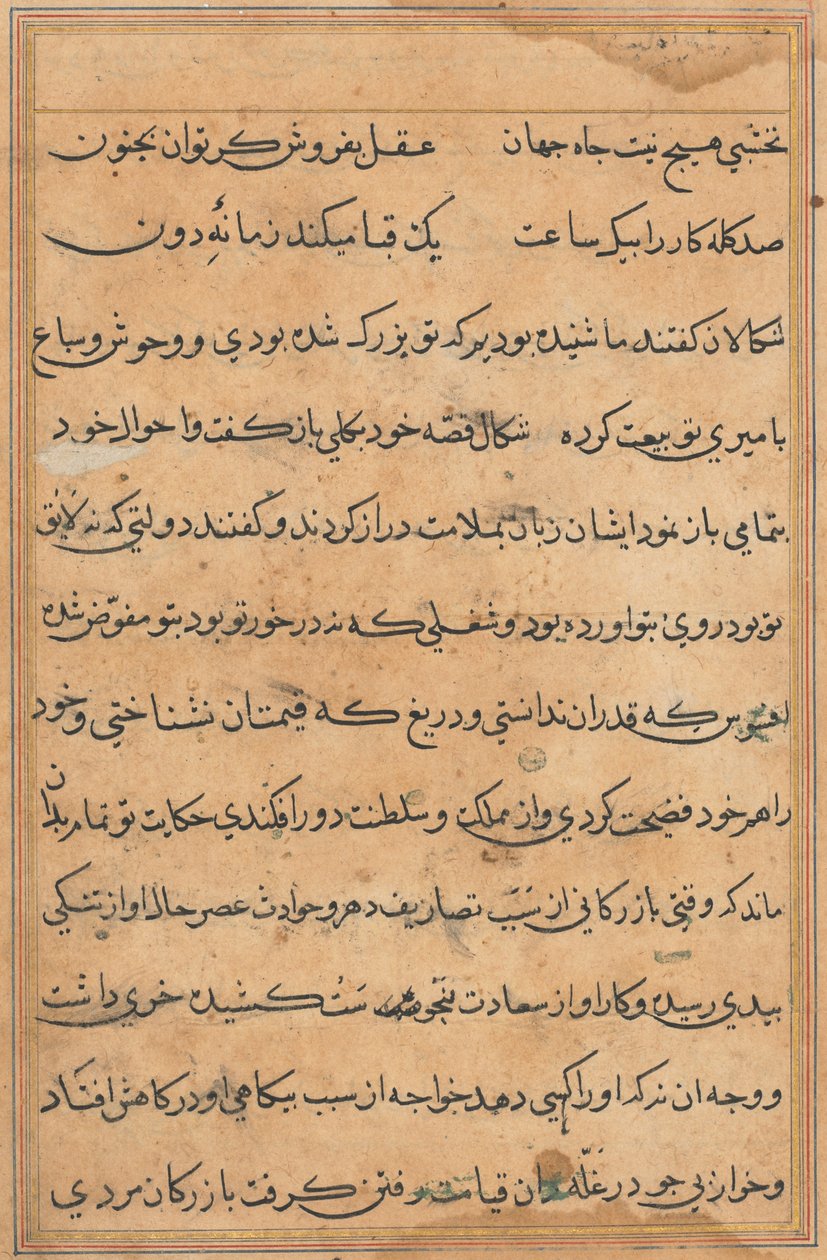 نخشبي هيچ نيست جاه جهان عقل بفروش کر توان بجنون
صد کله کار را بيک ساعت يک قبا ميکند زمانهٔ دون
شکالان کفتند ما شنيده بوديم که تو بزرک شده بودي و وحوش و سباع
با ميري تو بيعت کرده شکال قصّه خود بکلي باز کفت و احوال خود
بتمامي باز نمود ايشان زبان بملامت دراز کردند و کفتند دولتي که نه لايق
تو بود روي بتو اورده بود و شغلي که نه در خور تو بود بتو مفوّض شده
افسوس که قدر ان ندانستي و دريغ که قيمت ان نشناختي و خود
را هم خود فضيحت کردي و از مملکت و سلطنت دور افکندي حکايت تو تمام بدان
ماند که وقتي بازرکاني از سبب تصاريف دهر و حوادث عصر حال او از تنکي
ببدي رسيده و کار او از سعادت بنحوست کشيده خري داشت
و وجه ان نه که او را کسي دهد خواجه از سبب بيکاهي او در کاهش افتاد
و خر از بي جو در غلّه دان قيامت رفتن کرفت بازرکان مردي